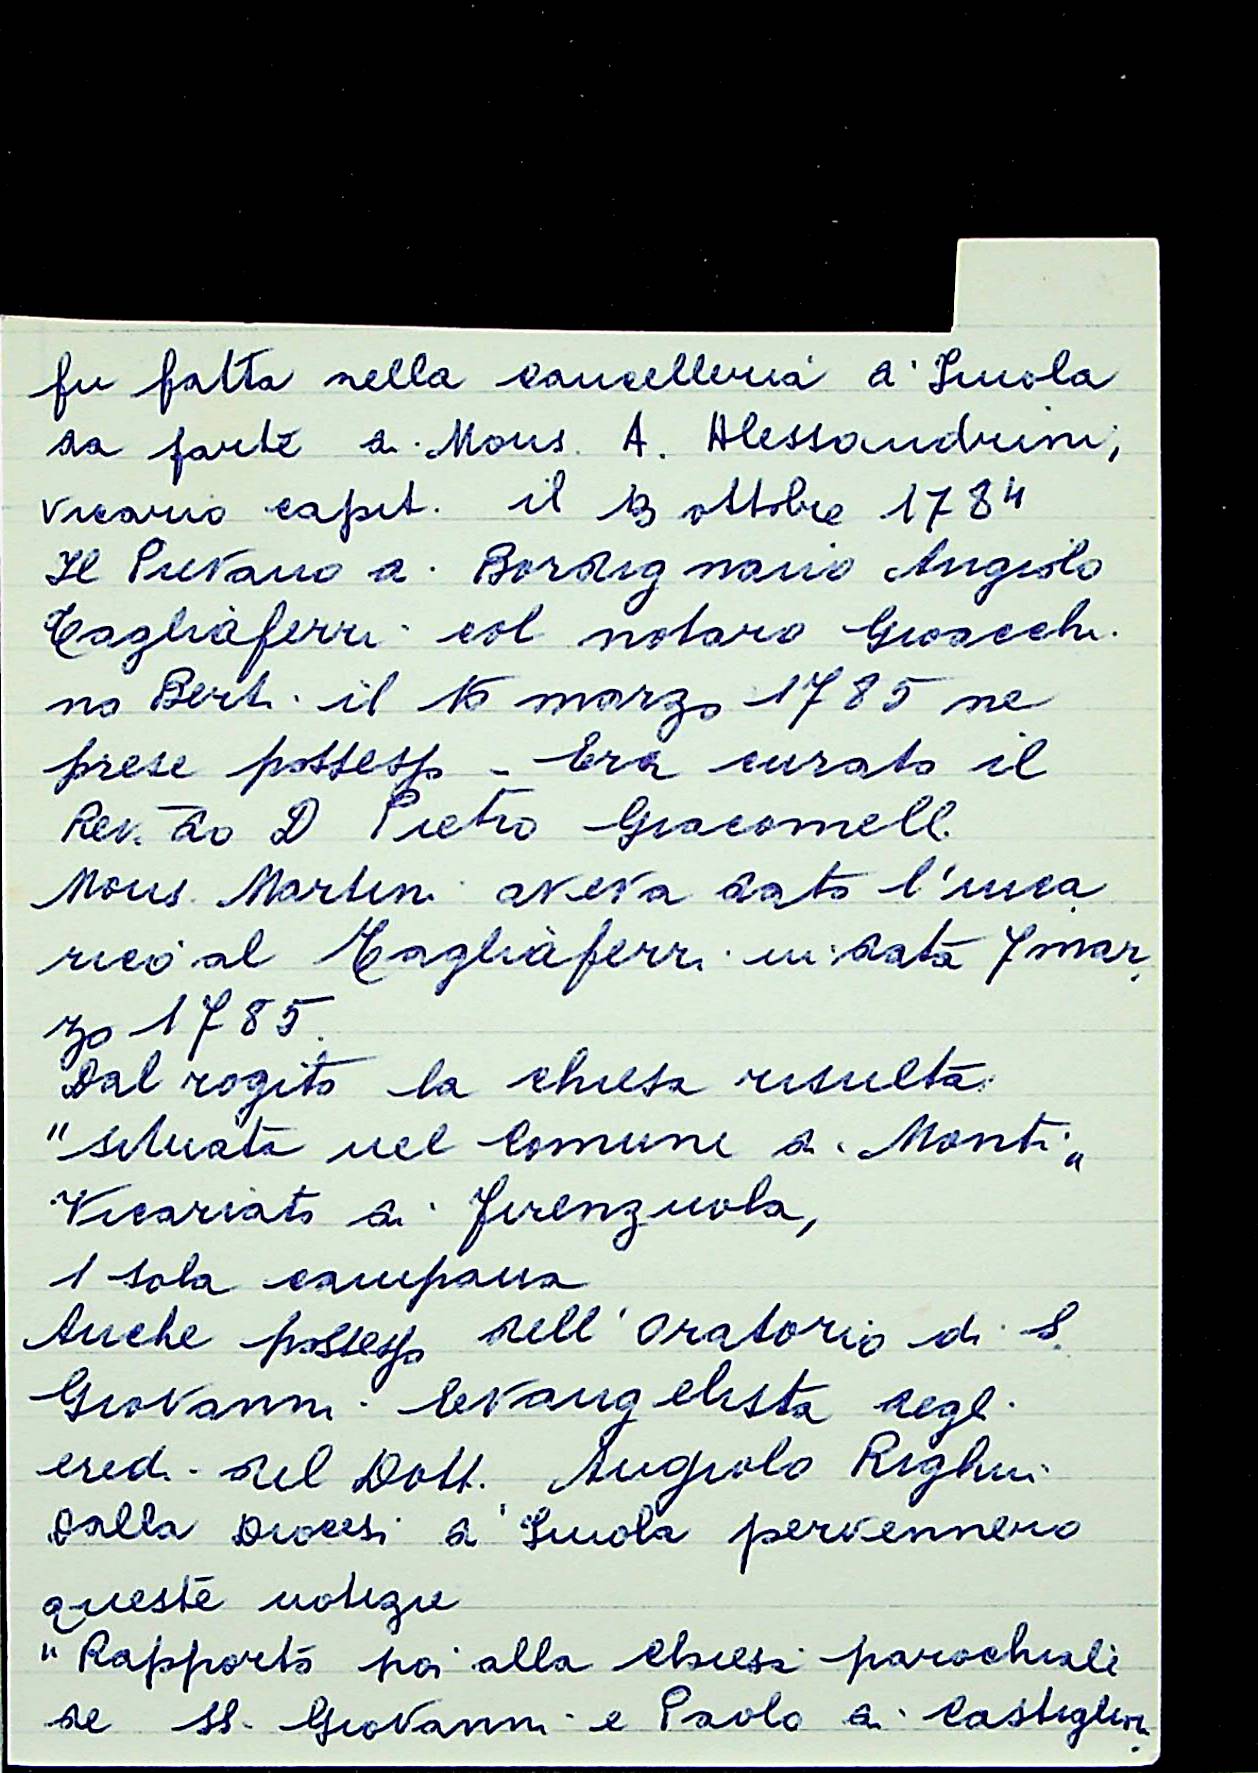 fu fatta nella cancelleria d'Imola
da parte di Mons. A. Alessandrini,
vicario capit. il 13 ottobre 1784
Il Pievano di Bordignano Angiolo
Tagliaferri col notaro Gioacchi
no Berti il 16 marzo 1785 ne
prese possesso - Era curato il
Rev.do D Pietro Giacomelli
Mons. Martini aveva dato l'inca
rico al Tagliaferri in data 7 mar
zo 1785.
Dal rogito la chiesa risulta
"situata nel Comune di Monti"
Vicariato di Firenzuola,
1 sola campana
Anche possesso dell'Oratorio di S.
Giovanni Evangelista degli
eredi del Dott. Angiolo Righini
Dalla Diocesi d'Imola pervennero
queste notizie
"Rapporto poi alla chiesa parochiale
de SS. Giovanni e Paolo di Castiglion